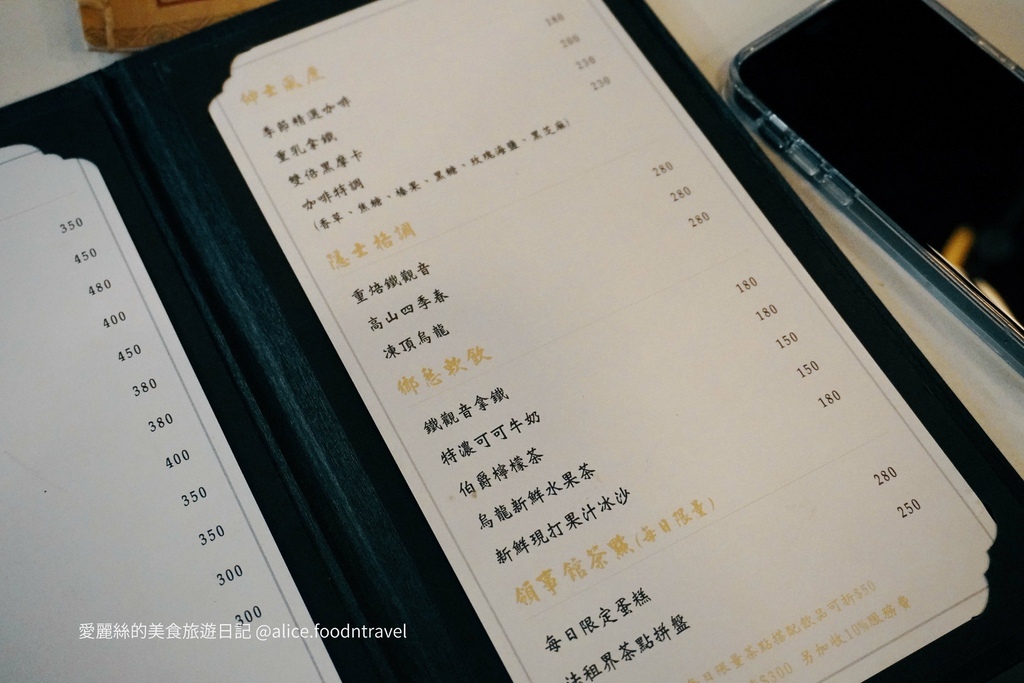 350
450
480
400
450
380
380
400
350
350
300
300
紳士風度
季節精選咖啡 180
重乳拿鐵 200
雙倍黑摩卡 230
咖啡特調 230
(香草、焦糖、榛果、黑糖、玫瑰海鹽、黑芝麻)
隱士格調
重焙鐵觀音 280
高山四季春 280
凍頂烏龍 280
鄉愁軟飲
鐵觀音拿鐵 180
特濃可可牛奶 180
伯爵檸檬茶 150
烏龍新鮮水果茶 150
新鮮現打果汁冰沙 180
領事館茶點(每日限量)
每日限定蛋糕 280
法租界茶點拼盤 250
每日限量茶點搭配飲品可折$50
$300 另加收10%服務費
愛麗絲的美食旅遊日記 @alice.foodntravel